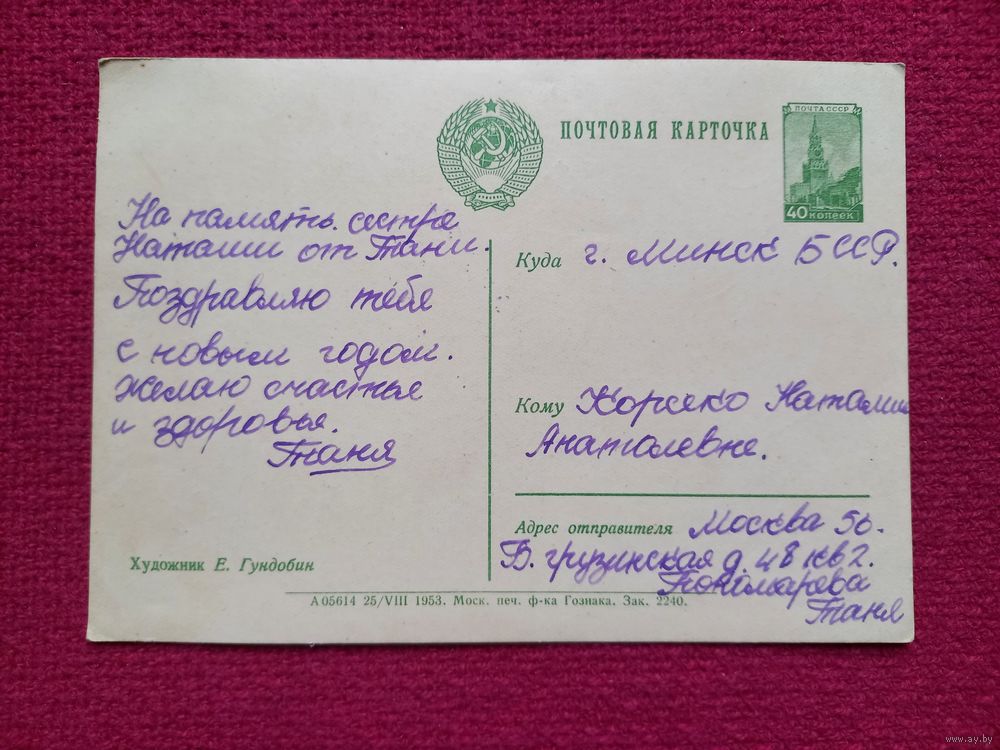 ПОЧТОВАЯ КАРТОЧКА
ПОЧТА СССР
40 КОПЕЕК
На память сестре
Наташи от Тани.
Поздравляю тебя
с новым годом.
желаю счастья
и здоровья.
Таня
Художник Е. Гундобин
Куда г. Минск БССР.
Кому Корсеко Наталии
Анатолевне.
Адрес отправителя Москва 56.
Б. грузинская д. 48 кв 2.
Пономарева
Таня
А 05614 25/VIII 1953. Моск. печ. ф-ка Гознака. Зак. 2240.
www.ay.by